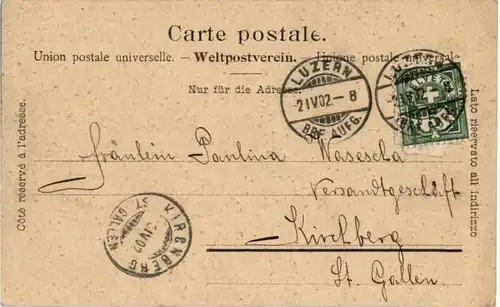 Carte postale.
Union postale universelle. – Weltpostverein. – Unione postale universale
Nur für die Adresse.
LUZERN
-2IV02-8
BRF. AUFG.
LUZERN
Côté réservé à l'adresse.
Lato riservato all indirizzo
Fräulein Paulina Wasescha
Versandtgeschäft
Kirchberg
St. Gallen
KIRCHBERG
IV02
ST. GALLEN